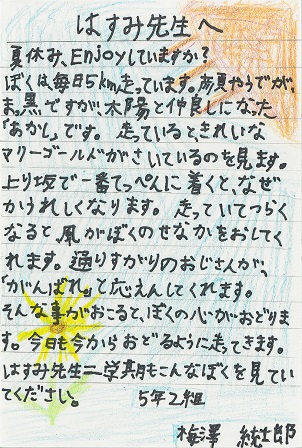 はすみ先生へ
夏休み、Enjoyしていますか?
ぼくは、毎日5km走っています。顔やうでが、
ま黒ですが、太陽と仲良しになった
「あかし」です。走っていると、きれいな
マリーゴールドがさいているのを見ます。
上り坂で一番てっぺんに着くと、なぜ
かうれしくなります。走っていてつらく
なると風がぼくのせなかをおしてく
れます。通りすがりのおじさんが、
「がんばれ。」と応えんしてくれます。
そんな事がおこると、ぼくの心がおどりま
す。今日も今からおどるように走ってきます。
はすみ先生二学期もこんなぼくを見てい
てください。 5年2組
梅澤 統士郎